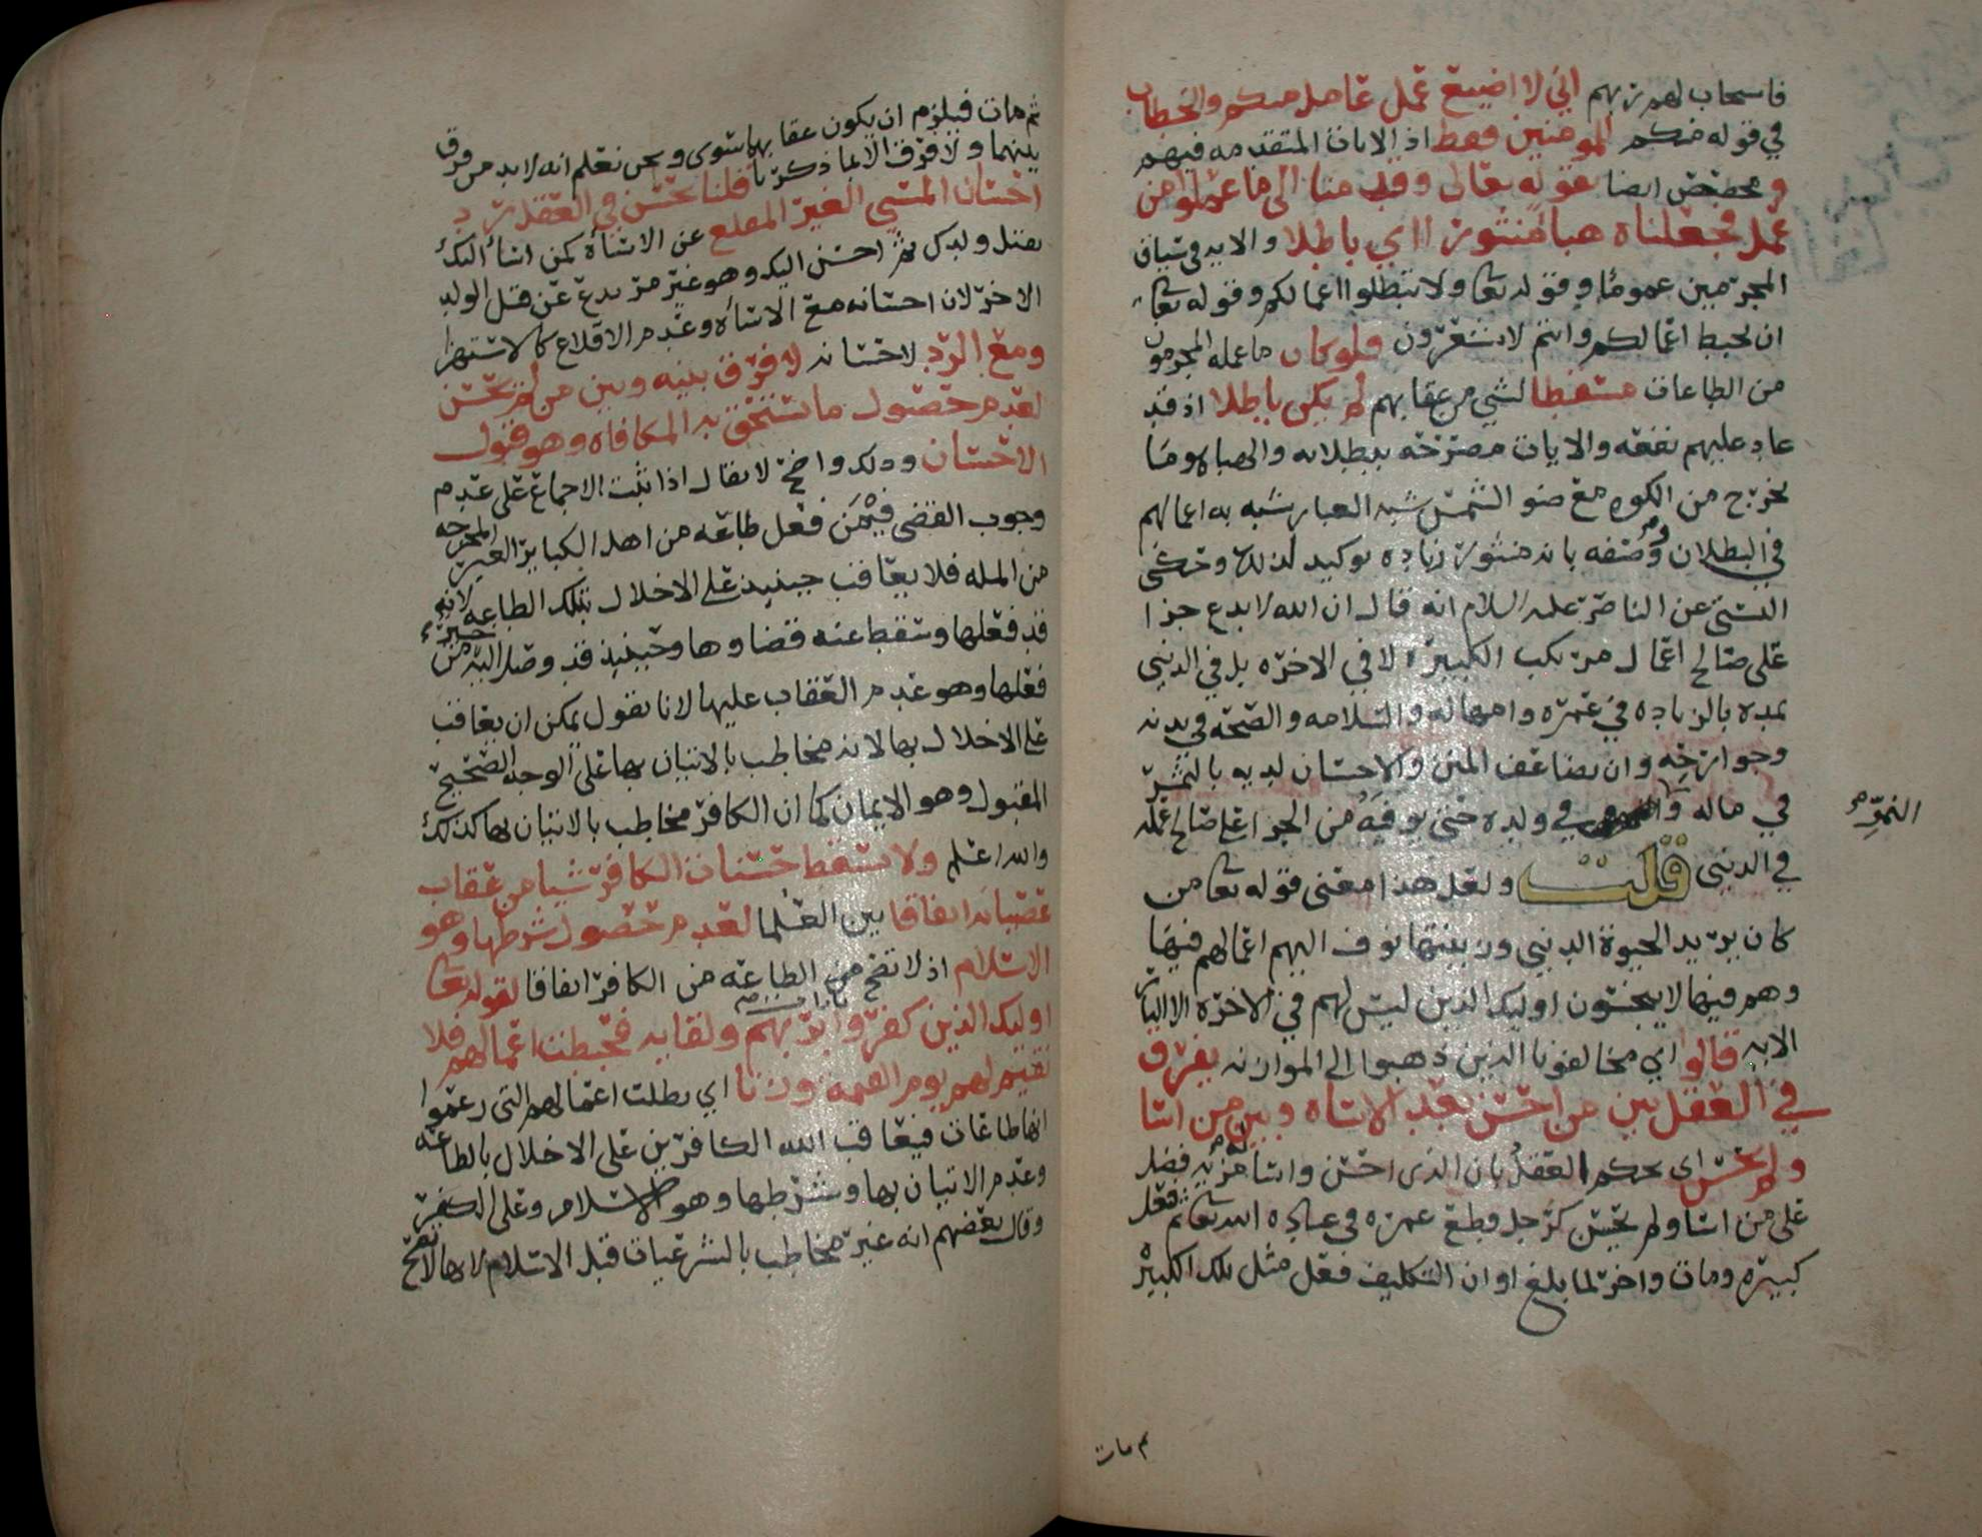 فاستجاب لهم ربهم اني لا اضيع عمل عامل منكم والخطاب
في قوله منكم للمومنين فقط اذ الايات المتقدمه فيهم
ومخصص ايضا بقوله تعالى وقدمنا الى ما عملوا من
عمل فجعلناه هبا منثورا اي باطلا والايه في سياق
المجرمين عموما وقوله تعا ولا تبطلوا اعمالكم وقوله تعا
ان تحبط اعمالكم وانتم لا تشعرون فلو كان ما عمله المجرمون
من الطاعات مسقطا لشي من عقابهم لم يكن باطلا اذ قد
عاد عليهم نفعه والايات مصرحه ببطلانه والهبا هو ما
يخرج من الكوه مع ضو الشمس شبه الغبار شبه به اعمالهم
في البطلان ووصفه بانه منثور زياده توكيد لذلك وحكى
البستي عن الناصر عليه السلام انه قال ان الله لا يدع جزا
على صالح اعمال مرتكب الكبيره لا في الاخره بل في الدنيى
يمده بالزياده في عمره وامهاله والسلامه والصحه في بدنه
وجوارحه وان يضاعف المنن والاحسان لديه بالتثمير
في ماله و في ولده حتى يوفيه من الجزا على صالح عمله
النمو
في الدنيى قلت ولعل هذا معنى قوله تعا من
كان يريد الحيوة الدنيى وزينتها نوف اليهم اعمالهم فيها
وهم فيها لا يبخسون اوليك الذين ليس لهم في الاخره الا النار
الايه قالوا اي مخالفونا الذين ذهبوا الى الموازنه يفرق
في العقل بين من احسن بعد الاساه وبين من اسا
ولم يحسن اي يحكم العقل بان الذي احسن واسا له مزيه فضل
على من اسا ولم يحسن كرجل قطع عمره في عباده الله تعا ثم فعل
كبيره ومات واخر لما بلغ اوان التكليف فعل مثل تلك الكبيره
ثم مات
ثم مات فيلزم ان يكون عقابهما سوى ونحن نعلم انه لا بد من فرق
بينهما ولا فرق الا بما ذكرنا قلنا يحسن في العقل رد
احسان المسي الغير المقلع عن الاساه كمن اسا اليك
بقتل ولدك ثم احسن اليك وهو غير مرتدع عن قتل الولد
الاخر لان احسانه مع الاساه وعدم الاقلاع كالاستهزا
ومع الرد لاحسانه لا فرق بينه وبين من لم يحسن
لعدم حصول ما يستحق به المكافاه وهو قبول
الاحسان وذلك واضح لا يقال اذا ثبت الاجماع على عدم
وجوب القضى فيمن فعل طاعه من اهل الكباير الغير المخرجه
من المله فلا يعاقب حينيذ على الاخلال بتلك الطاعه لانه
قد فعلها وسقط عنه قضاوها وحينيذ قد وصل اليه خير من
فعلها وهو عدم العقاب عليها لانا نقول يمكن ان يعاقب
على الاخلال بها لانه مخاطب بالاتيان بها على الوجه الصحيح
المقبول وهو الايمان كما ان الكافر مخاطب بالاتيان بها كذلك
والله اعلم ولا يسقط حسنات الكافر شيا من عقاب
عصيانه اتفاقا بين العلما لعدم حصول شرطها وهو
الاسلام اذ لا تصح من الطاعه من الكافر اتفاقا لقوله تعا
اوليك الذين كفروا بايات ربهم ولقايه فحبطت اعمالهم فلا
نقيم لهم يوم القيمه وزنا اي بطلت اعمالهم التي زعموا
انها طاعات فيعاقب الله الكافرين على الاخلال بالطاعه
وعدم الاتيان بها وبشرطها وهو الاسلام وعلى الكفر
وقال بعضهم انه غير مخاطب بالشرعيات قبل الاسلام لانها لا تصح